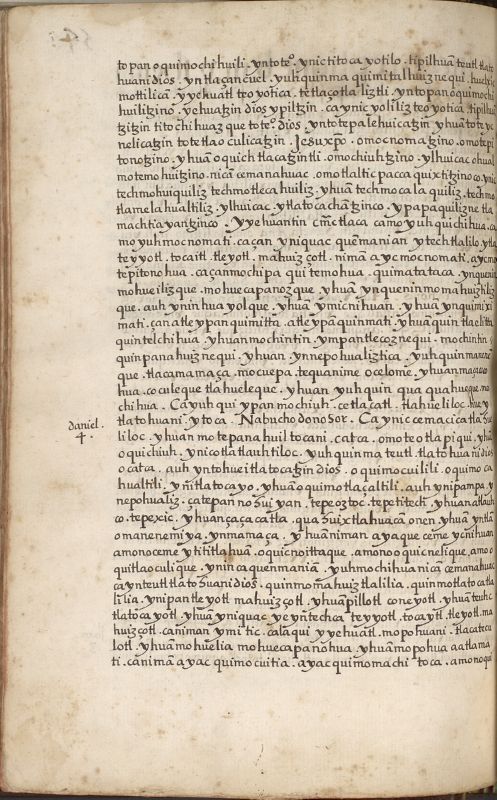 topan oquimochihuili . yntoteº. ynic titoca yotilo . tipilhuā teutl tlato
huani dios . yntlaçancuel . yuh quinma quimitalhuiznequi . huel ix
mottilicā . yyehuatl teoyotica . tetlaçotlaliztli . yntopan oquimochi
huilitzino . yehuatzin dios ypiltzin . ca ynic yoliliz teoyotica . tipilhuā
tzitzin titochihuazque toteº. dios . yntotepalehuicatzin yhuā totey
nelicatzin totetlaoculicatzin . Jesu xp̄o . omocnomatzino . omotepi
tonotzino . yhuā oquichtlacatzintli . omochiuhtzino . ylhuicac ohual
motemohuitzino . nicā cemanahuac . omotlalticpacca quixtitzinoco . ynic
techmohuiquiliz techmotlecahuiliz . yhuā techmocalaquiliz . techmo
tlamelahualtiliz . ylhuicac . ytlatocachātzinco . ypapaquiliznetla
machtiayantzinco . Yyehuantin cm̄ctlaca camo yuh quichihua . ca
mo yuh mocnomati . caçan yniquac quēmanian ytech tlalilo . ytla
teyyotl . tocaitl . tleyotl . mahuizçotl . nimā aycmocnomati . aycmo
tepitonohua . caçan mochipa quitemohua . quimatataca . ynquenin
mohueilizque . mohuecapanozque . yhuā ynquenin momahuiztiliz
que . auh ynin huayolque . yhuā ymicnihuan . yhuā ynquimixi
mati . çan atle ypan quimitta . atle ypā quinmati . yhuā quintlaelitta
quintelchihua . yhuan mochintin . ympan tlecoznequi . mochintin
quinpanahuiznequi . yhuan . ynnepohualiztica . yuhquin manene
que . tlacamamaça . mocuepa . tequanime ocelome . yhuan maçame
hua . coculeque tlahueleque . yhuan yuhquin quaquahueque mo
chihua . Ca yuhqui ypan mochiuh . ce tlacatl . tlahueliloc . huey
tlatohuani . ytoca . Nabuchodonosor . Ca ynic cemacicatlahue
liloc . yhuan motepanahuiltocani . catca . omoteotlapiqui . yhuā
oquichiuh . ynicotlatlauhtiloc . yuhquinma teutl . tlatohuani dios
ocatca . auh yntohueitlatocatzin dios . oquimocuilili . oquimoca
hualtili . yn̄itlatocayo . yhuā oquimotlaçaltili . auh ynipampa y
nepohualiz . çatepan nohuiyan . tepeoztoc . tepetitech . yhuan atlauh
co . tepexic . yhuan çaça catla . quahuixtlahuacā onen . yhuā yntlā
omanenemiya . ynmamaça . yhuā niman ayaque ceme ycnihuan
amonoceme ytititlahuā . oquicnoittaque . amono oquicnelique . amo o
quitlaoculique . ynin caquenmaniā . yuhmochihua nicā cemanahuac
ca ynteutl tlatohuani dios . quinmomahuiztlalilia . quinmotlatocatla
lilia . ynipan tleyotl mahuizçotl . yhuā pillotl coneyotl . yhuā teuhc
tlatocayotl . yhuā yniquac yeyntechca teyyotl . tocaytl . tleyotl . ma
huizçotl . caniman ymitic . calaqui yyehuatl . mopohuani . tlacatecu
lotl . yhuā mohueilia mohuecapanohua . yhuā mopohua aatlama
ti . canimā ayac quimocuitia . ayac quimomachitoca . amonoqui
daniel .
4 .